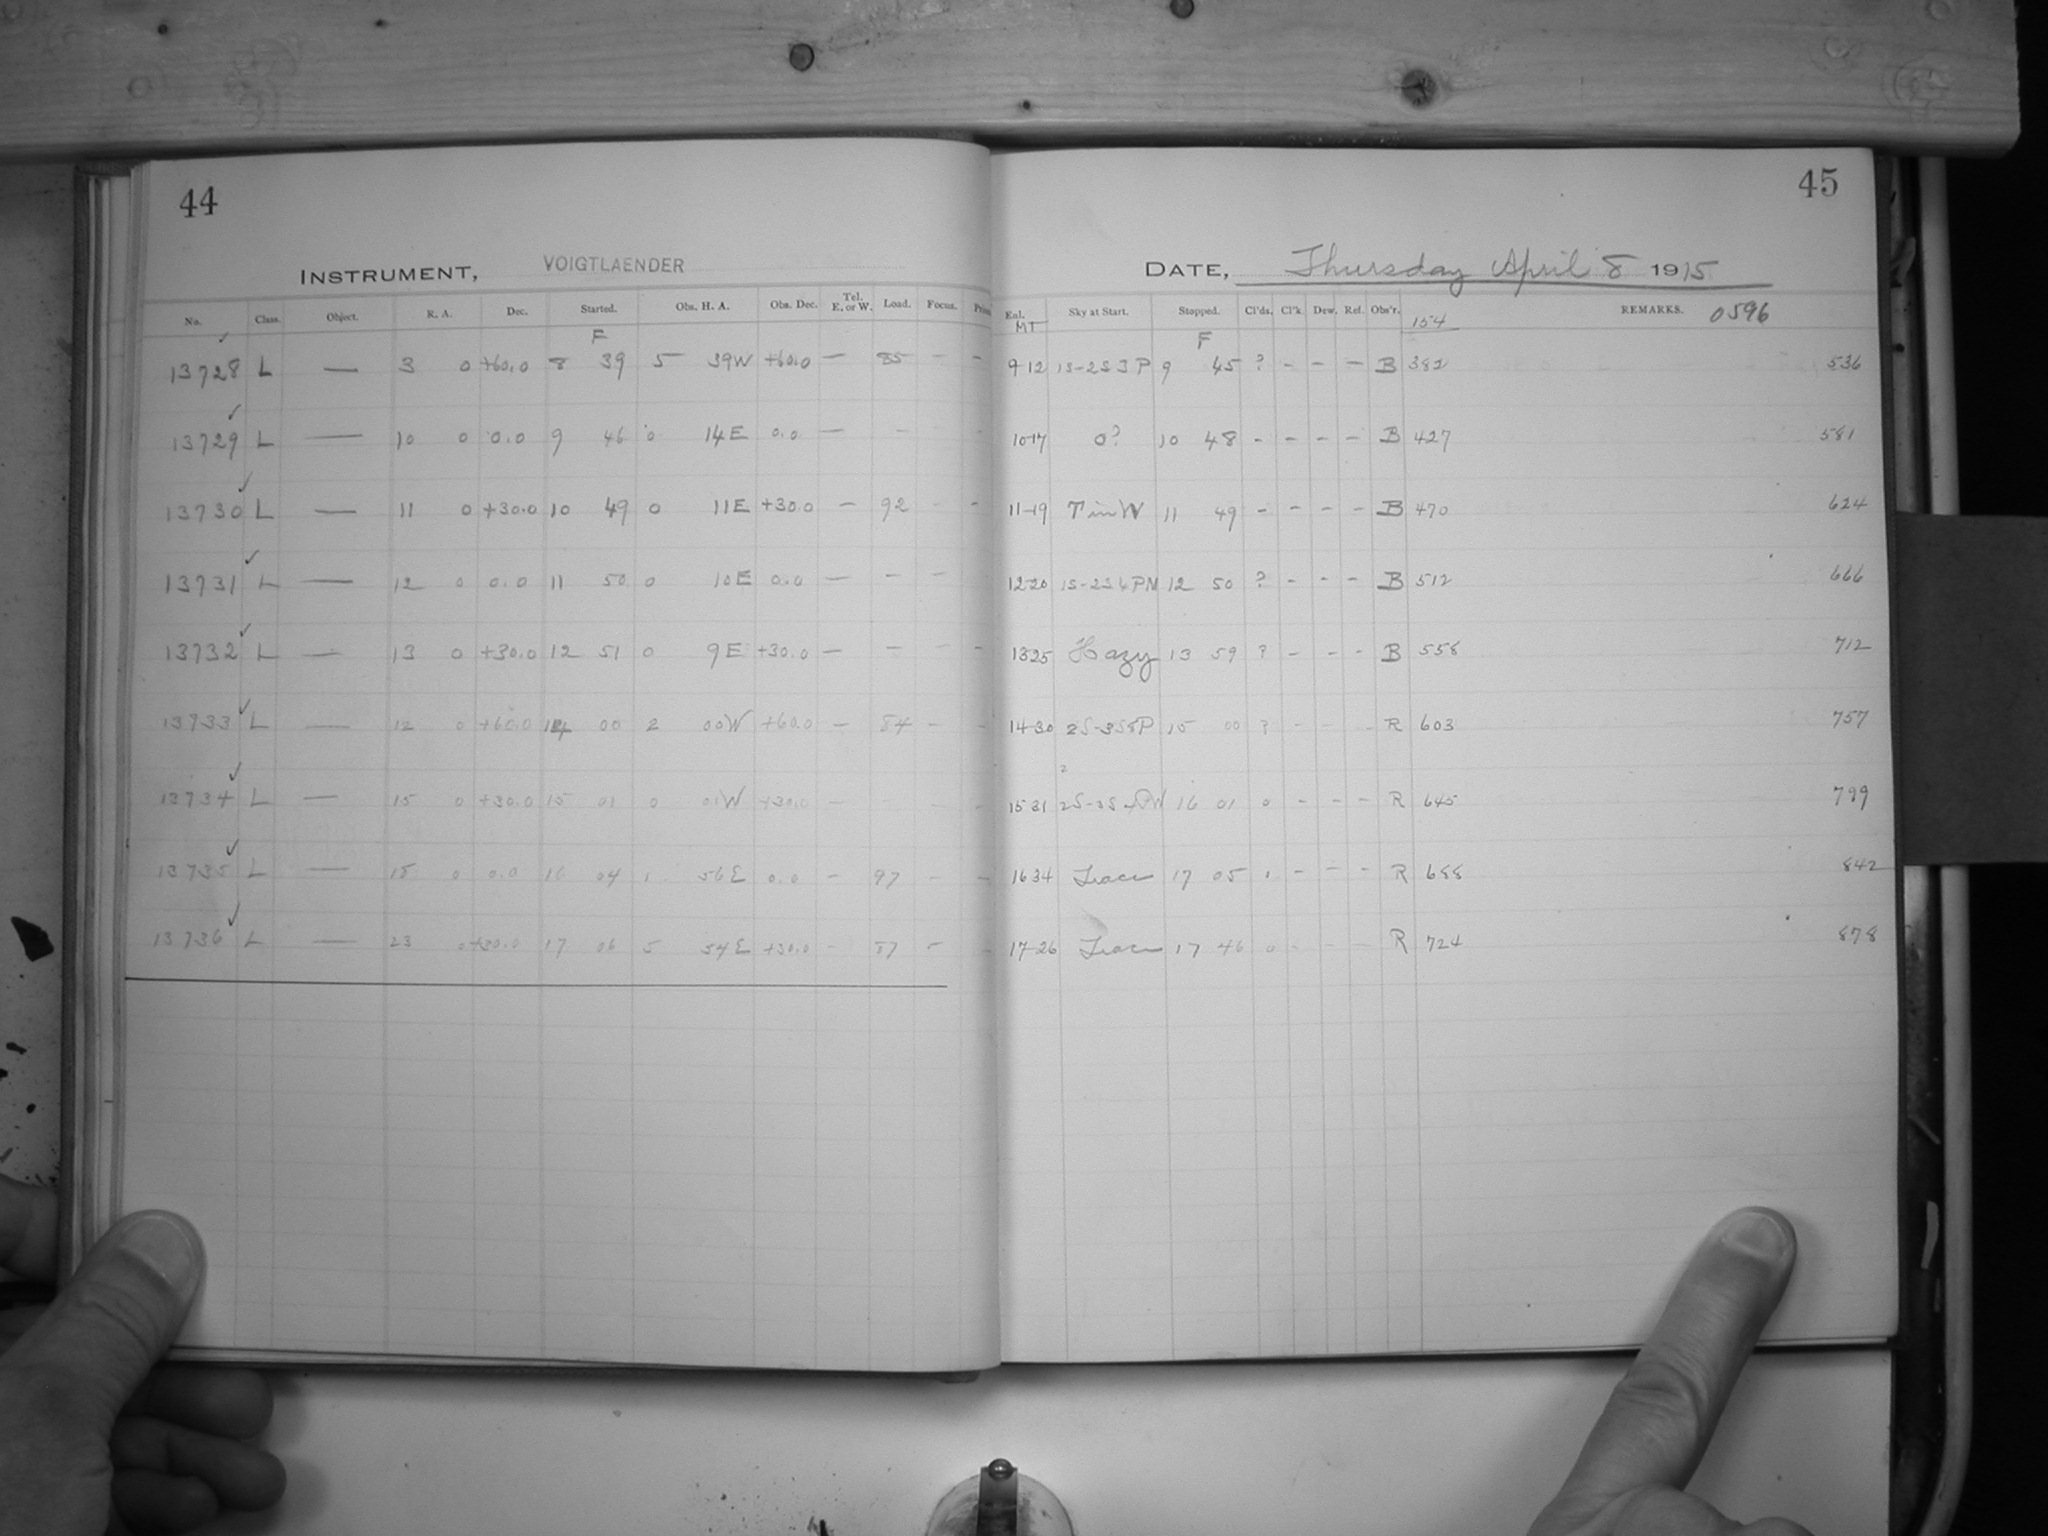 44
INSTRUMENT, VOIGTLAENDER
No. Class. Object. R. A. Dec. Started. Obs. H. A. Obs. Dec. Tel. E. or W. Load. Focus.
F
13728 L — 3 0 +60.0 8 39 5 39W +60.0 — 85 - -
13729 L — 10 0 0.0 9 46 0 14E 0.0 — -
13730 L — 11 0 +30.0 10 49 0 11E +30.0 — 92 - -
13731 L — 12 0 0.0 11 50 0 10E 0.0 — - -
13732 L — 13 0 +30.0 12 51 0 9E +30.0 — - - -
13733 L — 12 0 +60.0 14 00 2 00W +60.0 — 84 - -
13734 L — 15 0 +30.0 15 01 0 01W +30.0 — - -
13735 L — 18 0 0.0 16 04 1 56E 0.0 - 97 - -
13736 L — 23 0 +30.0 17 06 5 54E +30.0 - 87 - -
45
DATE, Thursday April 8 1915
MT Sky at Start. Stopped. Cl'ds. Cl'k. Dew. Ref. Obs'r. 154 REMARKS. 0596
F
9-12 1S-2S 3P 9 45 ? - - - B 382 536
10-17 0? 10 48 - - - - B 427 581
11-19 T in W 11 49 - - - - B 470 624
12-20 1S-2S 4PM 12 50 ? - - - B 512 666
13 25 Hazy 13 59 ? - - - B 558 712
14-30 2S-3S 5P 15 00 ? - - - R 603 757
15 31 16 01 0 - - - R 645 799
16 34 17 05 1 - - - R 688 842
17-26 17 46 0 - - R 724 878